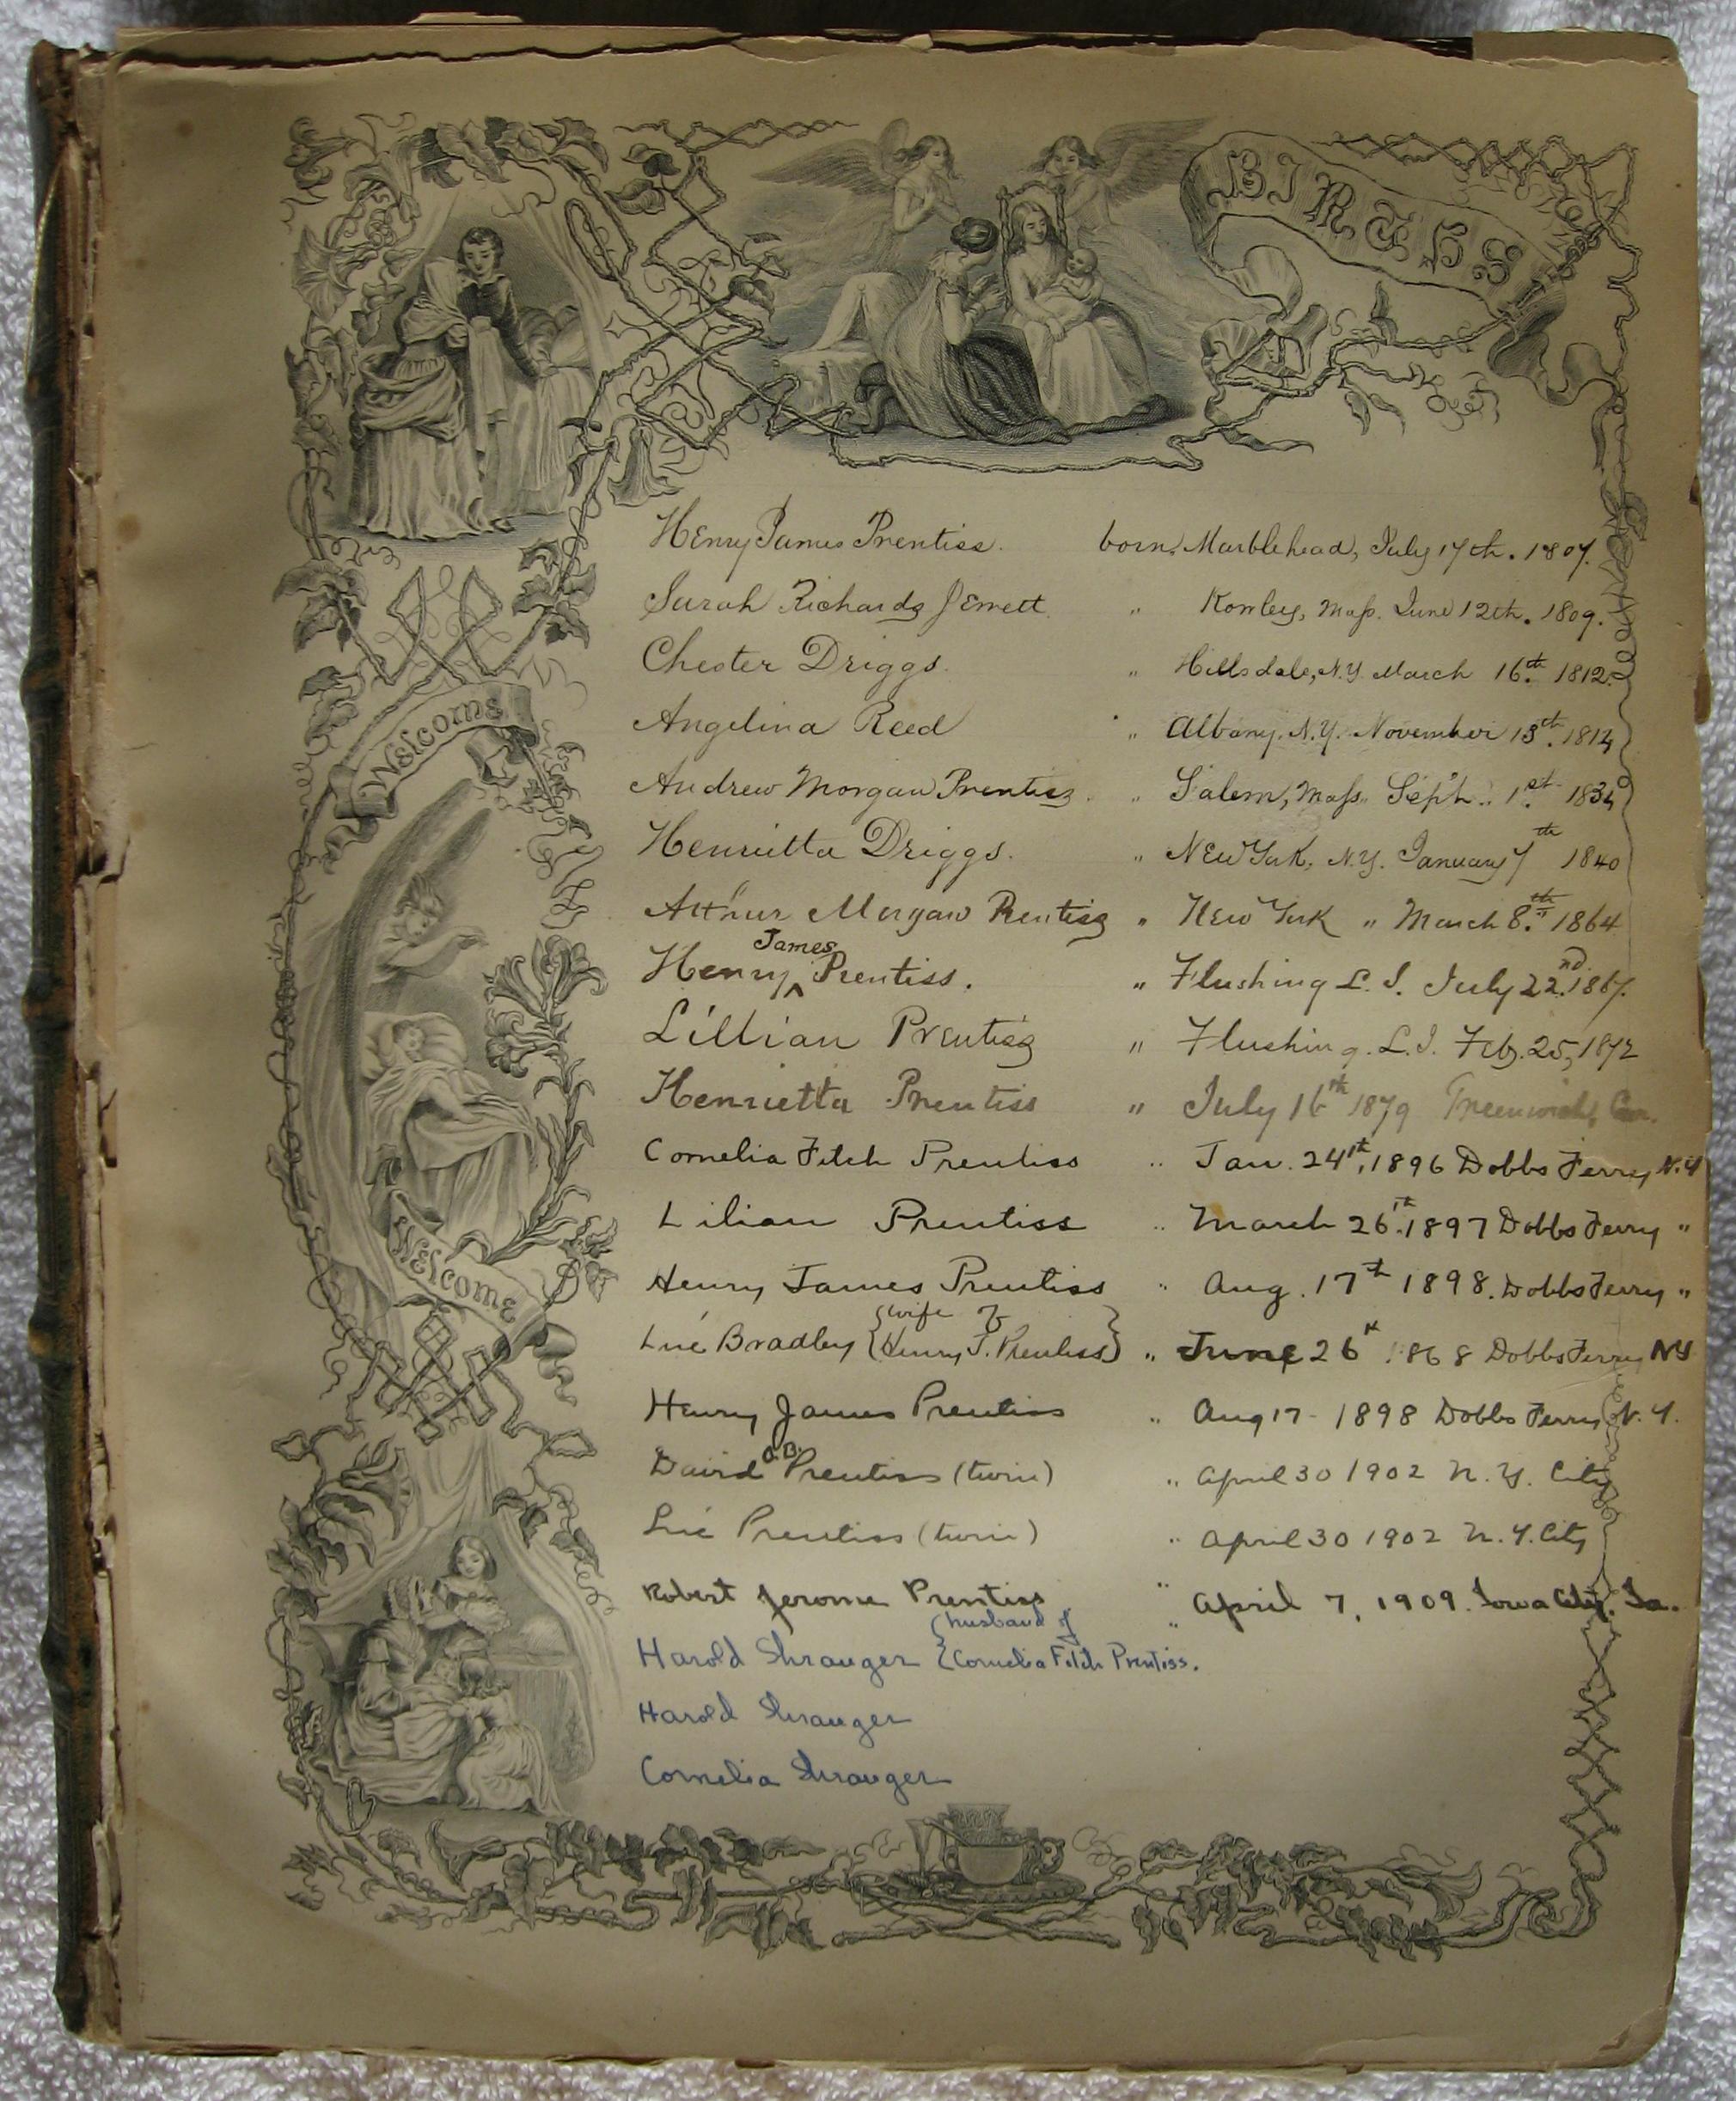 BIRTHS
Welcome
Welcome
Henry James Prentiss. born, Marblehead, July 17th. 1807.
Sarah Richards Jewett " Rowley, Mass. June 12th. 1809.
Chester Driggs. " Hillsdale, N.Y. March 16th. 1812.
Angelina Reed " Albany. N.Y. November 13th. 1814
Andrew Morgan Prentiss. " Salem, Mass. Sept. 1st. 1834
Henrietta Driggs. " New York, N.Y. January 7th 1840
Arthur Morgan Prentiss " New York " March 8th. 1864
Henry James Prentiss. " Flushing L. I. July 22nd. 1867.
Lillian Prentiss " Flushing. L.I. Feb. 25, 1872
Henrietta Prentiss " July 16th 1879 Greenwich, Con.
Cornelia Fitch Prentiss " Jan. 24th, 1896 Dobbs Ferry N.Y
Lilian Prentiss " March 26th. 1897 Dobbs Ferry "
Henry James Prentiss " Aug. 17th 1898. Dobbs Ferry "
Lué Bradley {wife of Henry J. Prentiss} " June 26th 1868 Dobbs Ferry NY
Henry James Prentiss " Aug 17 - 1898 Dobbs Ferry N. Y.
David O.B. Prentiss (twin) " April 30 1902 N. Y. City
Lué Prentiss (twin) " April 30 1902 N. Y. City
Robert Jerome Prentiss " April 7, 1909. Iowa City. Ia.
Harold Shrauger {husband of Cornelia Fitch Prentiss. "
Harold Shrauger
Cornelia Shrauger